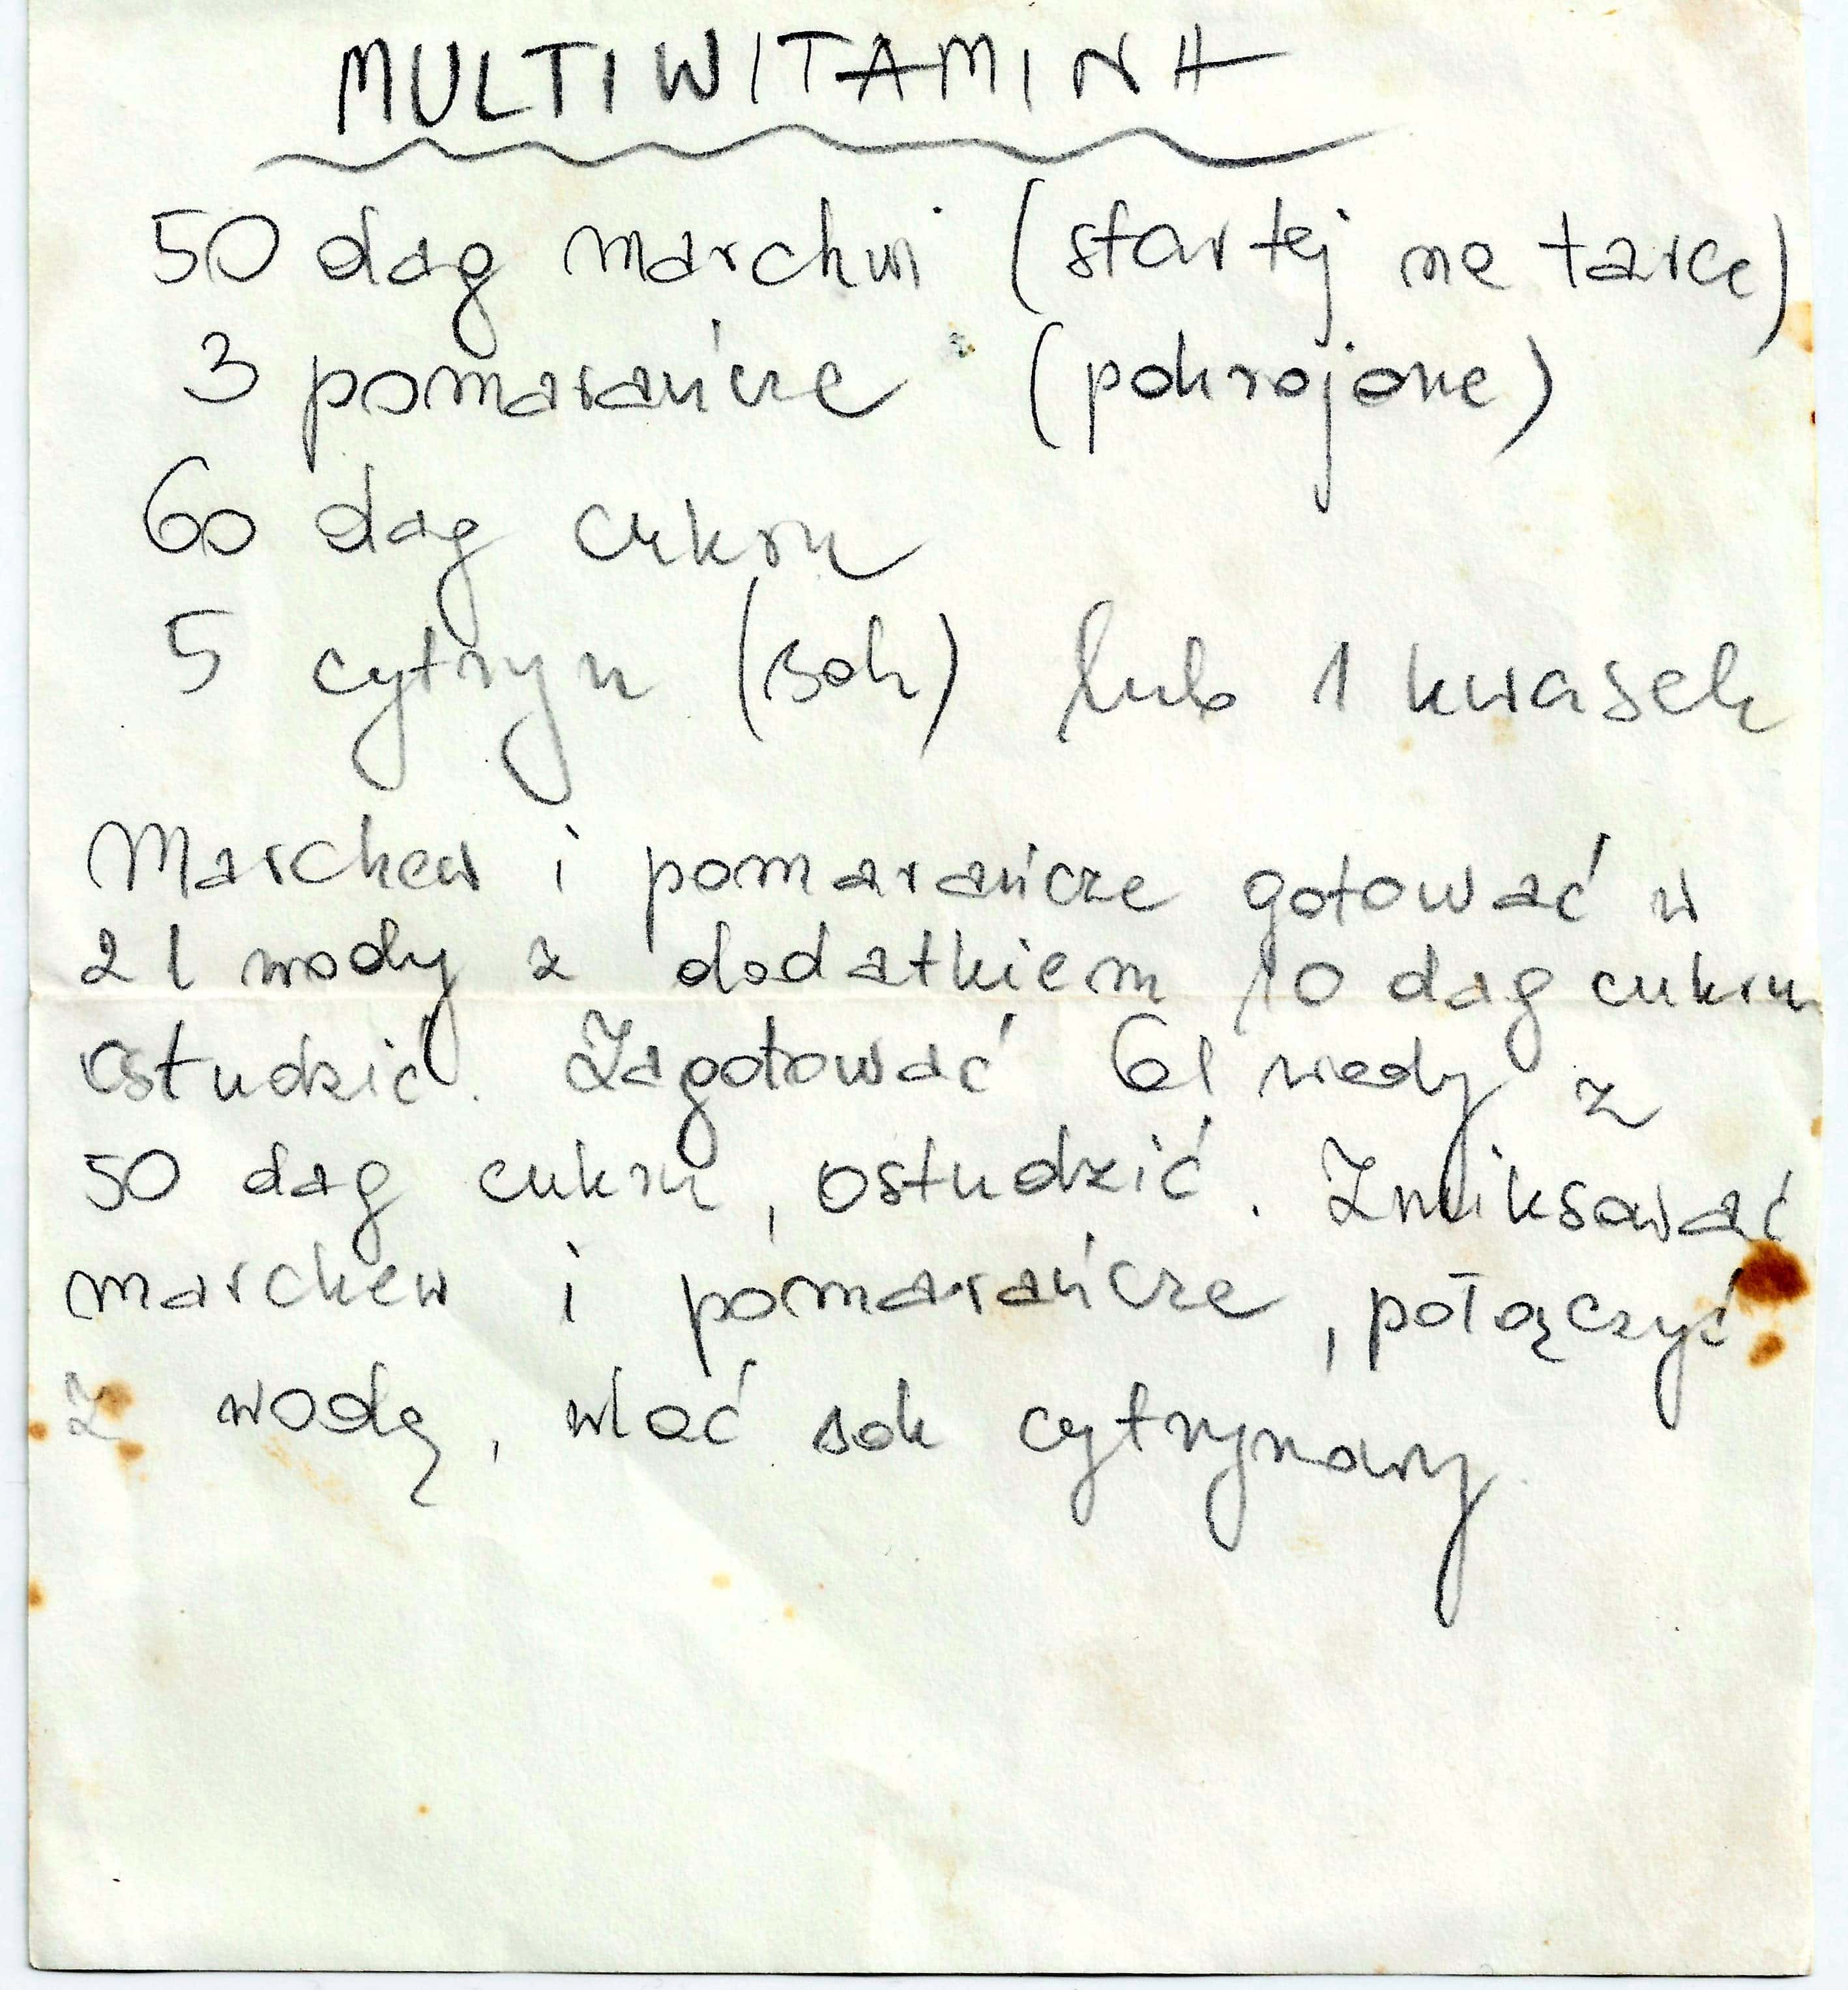 MULTIWITAMINA
50 dag marchwi (startej na tarce)
3 pomarańcze (pokrojone)
60 dag cukru
5 cytryn (sok) lub 1 kwasek
Marchew i pomarańcze gotować w
2 l wody z dodatkiem 10 dag cukru
ostudzić. Zagotować 6 l wody z
50 dag cukru, ostudzić. Zmiksować
marchew i pomarańcze, połączyć
z wodą, wlać sok cytrynowy